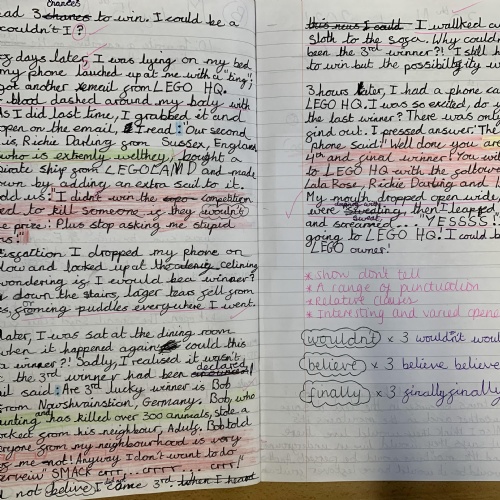 chances
had 3 chances to win. I could be a
couldn't I?
days later, I was lying on my bed
my phone lauched up at me with a "ting";
got another email from LEGO HQ.
blood dashed around my body with
As I did last time, I grabbed it and
open on the email, I read: "Our second
is Rickie Darling from Sussex, England
who is extremly welthey, bought a
pirate ship from LEGOLAND and made
own by adding an extra sail to it.
told us: "I didn't win the competition
ed to kill someone if they wouldn't
e prize! Plus stop asking me stupid
I dropped my phone on
and looked up at the celining
wondering if I would be a winner?
down the stairs, larger tears fell from
forming puddles everywhere I went.
later, I was sat at the dining room
when it happened again could this
a winner?! Sadly, I realised it wasn't,
declared
the 3rd winner had been
ail said: "Are 3rd lucky winner is Bob
from Nowshrainstien, Germany. Bob, who
unting and has killed over 300 animals, stole a
ocket from his neighbour, Adulf. Bob told
eryone from my neighbourhood is very
me not! Anyway I don't want to do
erveiw" SMACK crrr... crrr... crrr!"
not belive I came 3rd. when I heard
this news I could I wallked
Sloth to the sofa. Why couldn't
been the 3rd winner?! I still
to win but the possibility
3 hours later, I had a phone ca
LEGO HQ. I was so excited, do
the last winner? There was only
find out. I pressed answer. The
phone said: "Well done you are
4th and final winner! You
to LEGO HQ with the following
Lala Rose, Rickie Darling and
My mouth dropped open wide
were sweating, then I leaped
sweat
and screamed.... "YESSSS"
going to LEGO HQ. I could b
'LEGO owner.'
* Show don't tell
* A range of punctuation
* Relative clauses
* Interesting and varied opene
wouldn't x 3 wouldn't woul
believe x 3 believe believe
finally x 3 finally finally